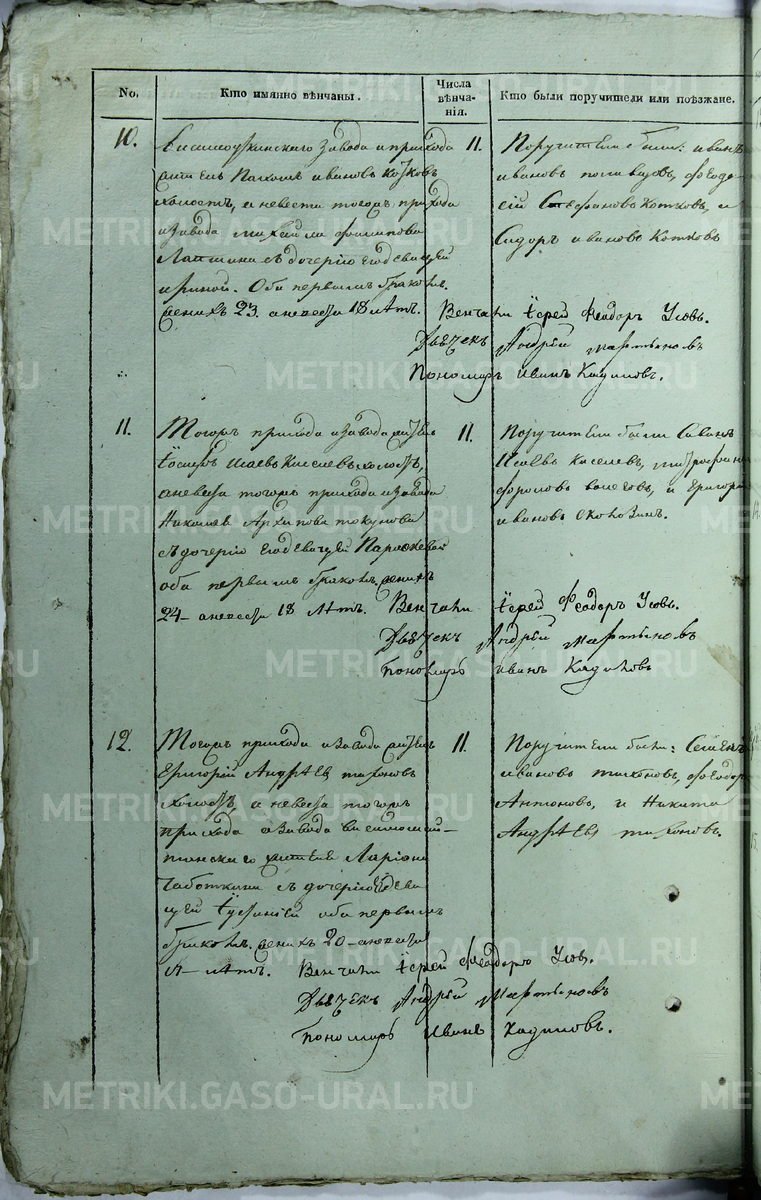 No.
Кто имянно вѣнчаны.
Числа вѣнча-нія.
Кто были поручители или поѣзжане.
10.
завода и прихода
житель Пахомъ Ивановъ
холостъ, а невеста тогожъ прихода
и завода Михайла Филипова
Лаптина съ дочерію его девицей
Ириной. Оба первымъ бракомъ.
жениху 23. а невесте 18 летъ.
11.
Поручители были: Иванъ
Ивановъ Феодо-
сій Стефановъ Котковъ, и
Сидоръ Ивановъ Котковъ
Венчали Іерей Феодоръ Усовъ.
Дьячекъ Андрей Мартыновъ
Пономарь Иванъ Кадиловъ.
11.
Тогожъ прихода и завода житель
Іосифъ Исаевъ Киселевъ холостъ,
а невеста тогожъ прихода и завода
Николая Архипова Токунова
съ дочерію его девицей Парасковей
оба первымъ бракомъ, жениху
24 – а невесте 18 летъ.
11.
Поручители были Савинъ
Исаевъ Киселевъ,
Фроловъ и Григорій
Ивановъ
Венчали Іерей Феодоръ Усовъ.
Дьячекъ Андрей Мартыновъ
Пономарь Иванъ Кадиловъ
12.
Тогожъ прихода и завода житель
Григорей Андреевъ Тихоновъ
холостъ, а невеста тогожъ
прихода и завода
жителя Ларіона
съ дочерію его деви
цей оба первымъ
бракомъ. жениху 20 – а невесте
летъ.
11.
Поручители были: Семенъ
Ивановъ Тихоновъ, Феодоръ
Антоновъ, и Никита
Андреевъ Тихоновъ.
Венчали Іерей Феодоръ Усовъ.
Дьячекъ Андрей Мартыновъ
Пономарь Иванъ Кадиловъ.
METRIKI.GASO-URAL.RU